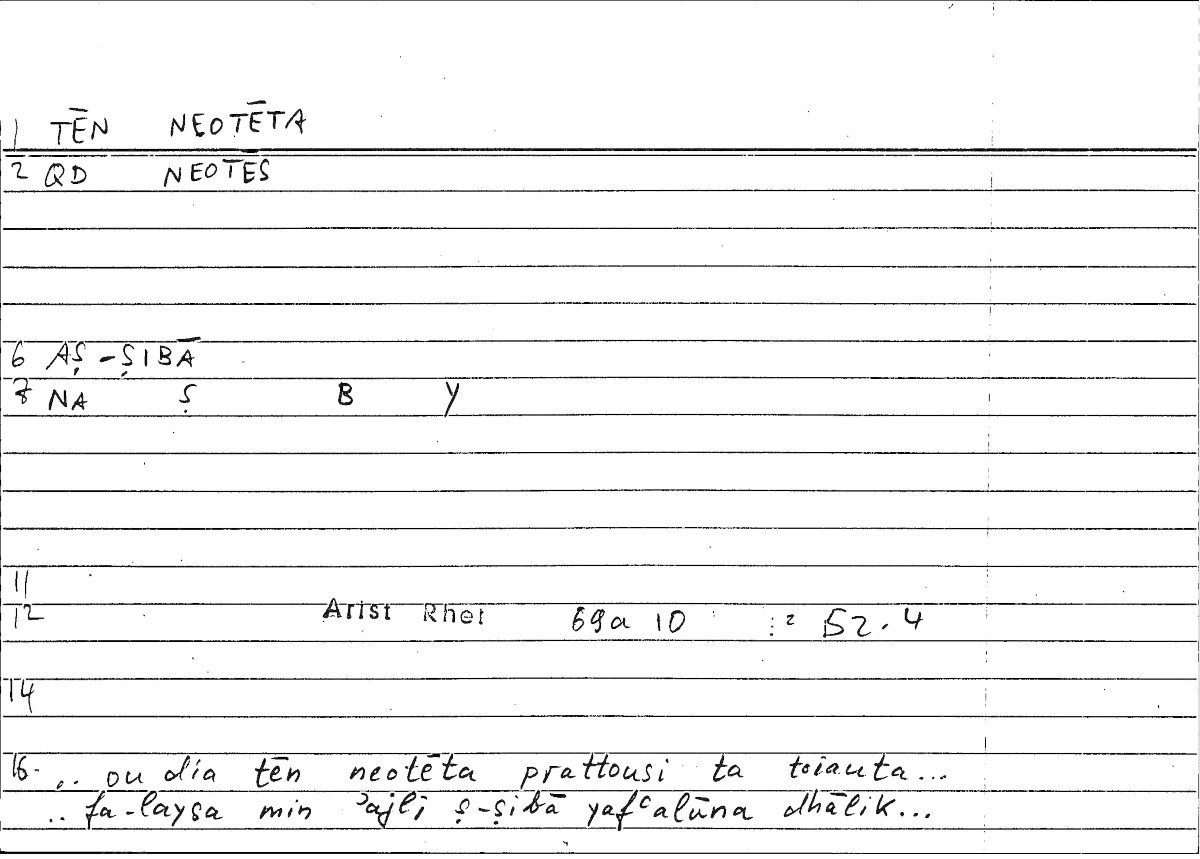 1 TĒN NEOTĒTA
2 QD NEOTĒS
6 AṢ-ṢIBĀ
7 NA Ṣ B Y
11
12 Arist Rhet 69a 10 :² 52.4
14
16. .. ou dia tēn neotēta prattousi ta toiauta...
.. fa-laysa min ʾajli ṣ-ṣibā yafʿalūna dhālik...